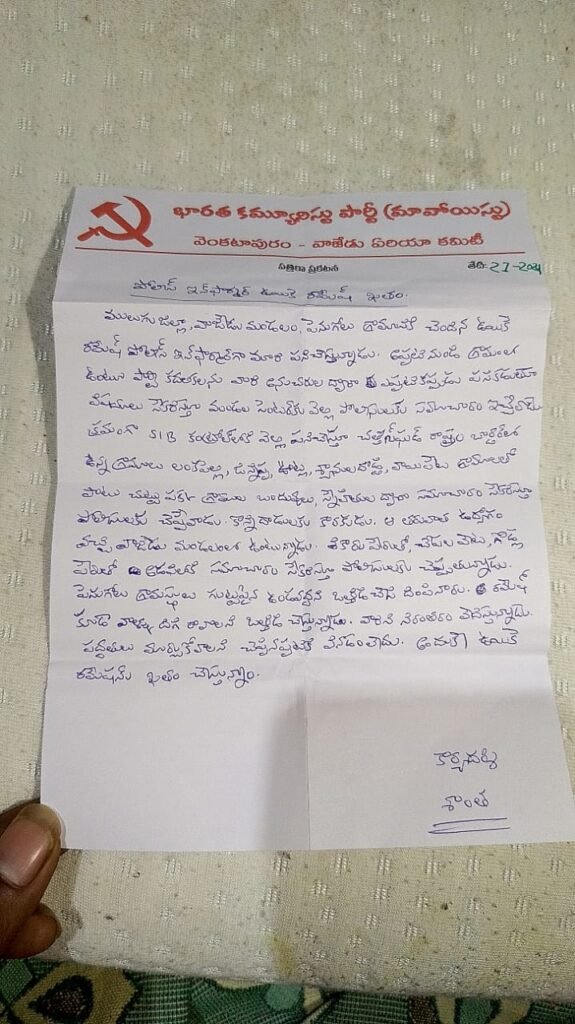 భారత కమ్యూనిస్టు పార్టీ (మావోయిస్టు)
వెంకటాపురం - వాజేడు ఏరియా కమిటీ
పత్రికా ప్రకటన
తేది:
పోలీస్ ఇన్‌ఫార్మర్ ఉయికె రమేష్ ఖతం.
ములుగు జిల్లా, వాజేడు మండలం, పెనుగోలు గ్రామానికి చెందిన ఉయికె
రమేష్ పోలీస్ ఇన్‌ఫార్మర్‌గా మారి పనిచేస్తున్నాడు. అప్పటి నుండి గ్రామంలో
ఉంటూ పార్టీ కదలికలను వారి అనుచరుల ద్వారా ఎప్పటికప్పుడు
విషయాలు సేకరిస్తూ మండల సెంటర్‌కు వెళ్లి పోలీసులకు సమాచారం ఇచ్చేవాడు
క్రమంగా SIB కంట్రోల్‌లోకి వెళ్లి పనిచేస్తూ చత్తీస్‌ఘడ్ రాష్ట్రం బార్డర్‌లో
ఉన్న గ్రామాలు లంకపల్లి, ఊట్ల, గ్రామాలలో
పాటు చుట్టు పక్కల గ్రామాల బంధువులు, స్నేహితుల ద్వారా సమాచారం సేకరిస్తూ
పోలీసులకు చెప్పేవాడు. కొన్ని దాడులకు కారకుడు. ఆ తరువాత ఉద్యోగం
వచ్చి వాజేడు మండలంలో ఉంటున్నాడు. శికారు పేరుతో, చేపల వేట, గొడ్ల
పేరుతో అడవిలో సమాచారం సేకరిస్తూ పోలీసులకు చెప్పుతున్నాడు.
పెనుగోలు గ్రామస్థులు గుట్టపైన ఉండవద్దని ఒత్తిడి చేసి దింపినారు. రమేష్
కూడా వాళ్ళు దిగి రావాలని ఒత్తిడి చేస్తున్నాడు. వారిని నిరంతరం వేధిస్తున్నాడు.
పద్ధతులు మార్చుకోవాలని చెప్పినప్పటికి వినడంలేదు. అందుకే ఉయికె
రమేష్‌ను ఖతం చేస్తున్నాం.
కార్యదర్శి
శాంత